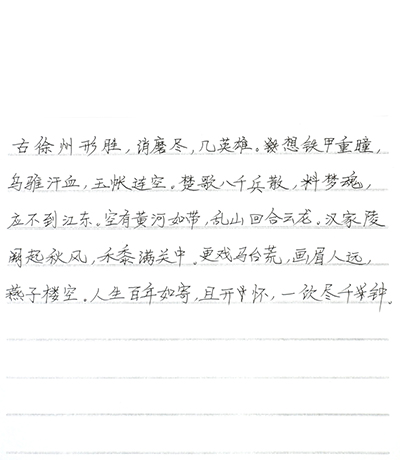 古徐州形胜,消磨尽,几英雄。想铁甲重瞳,
乌骓汗血,玉帐连空。楚歌八千兵散,料梦魂,
应不到江东。空有黄河如带,乱山回合云龙。汉家陵
阙起秋风,禾黍满关中。更戏马台荒,画眉人远,
燕子楼空。人生百年如寄,且开怀,一饮尽千钟。